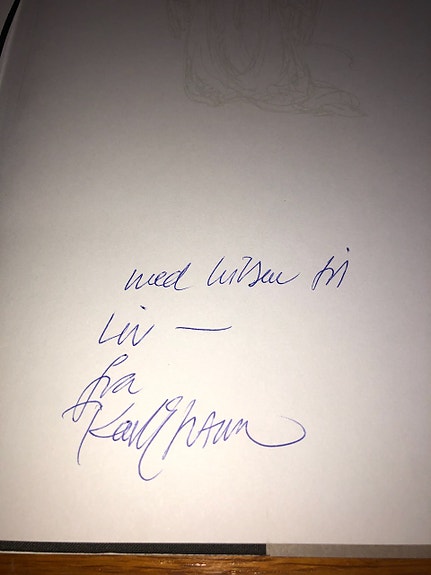 med hilsen til
Liv —
fra
Karl Erik